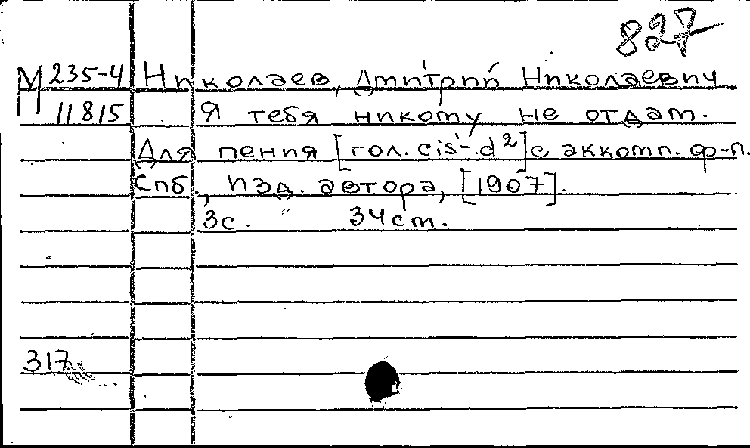 827
М 235-4 Николаев, Дмитрий Николаевич
11815 Я тебя никому не отдам.
Для пения [гол. cis¹-d²] с аккомп. ф-п.
Спб., Изд. автора, [1907].
3с. 34см.
317